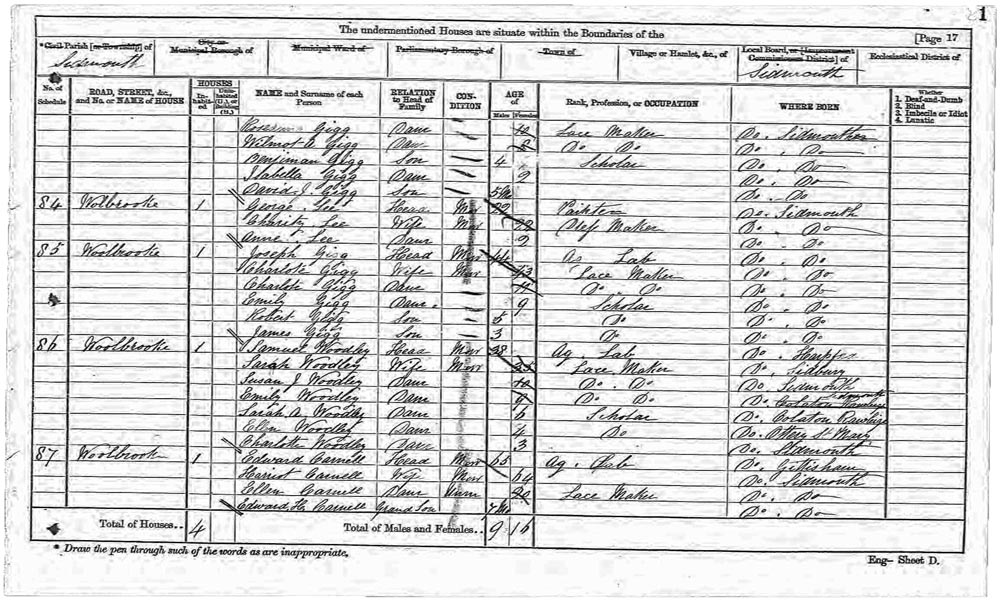 1
The undermentioned Houses are situate within the Boundaries of the [Page 17
*Civil Parish [or Township] of City or Municipal Borough of Municipal Ward of Parliamentary Borough of Town of Village or Hamlet, &c., of Local Board, or [Improvement Commissioners District] of Ecclesiastical District of
Sidmouth Sidmouth
No. of Schedule ROAD, STREET, &c., and No. or NAME of HOUSE HOUSES Inhabited Uninhabited (U.), or Building (B.) NAME and Surname of each Person RELATION to Head of Family CONDITION AGE of Males Females Rank, Profession, or OCCUPATION WHERE BORN Whether 1. Deaf-and-Dumb 2. Blind 3. Imbecile or Idiot 4. Lunatic
Gigg Daur 10 Lace Maker Do. Sidmouth
Wilmot Gigg Daur 8 Do Do Do. Do
Benjiman Gigg Son 4 Scholar Do. Do
Isabella Gigg Daur 2 Do. Do
David J. Gigg Son 5 Mo Do. Do
84 Wolbrooke 1 George Lee Head Mar 22 Do. Sidmouth
Charity Lee Wife Mar 22 Maker Do. Do
Annie Lee Daur 2 Do. Do
85 Woolbrooke 1 Joseph Gigg Head Mar 44 Ag Lab Do. Do
Charlote Gigg Wife Mar 43 Lace Maker Do. Do
Charlote Gigg Daur 11 Do. Do Do. Do
Emily Gigg Daur. 9 Scholar Do. Do
Robert Gigg Son 5 Do Do. Do
James Gigg Son 3 Do Do. Do
86 Woolbrooke 1 Samuel Woodley Head Mar 38 Ag Lab Do. Harpford
Sarah Woodley Wife Mar 35 Lace Maker Do. Sidbury
Susan J Woodley Daur 10 Do. Do Do. Sidmouth
Emily Woodley Daur 9 Do Do Do. Colaton Rawleigh
Sarah A Woodley Daur 6 Scholar Do. Colaton Rawleigh
Ellen Woodley Daur 4 Do Do. Ottery St Mary
Charlotte Woodley Daur 3 Do. Sidmouth
87 Woolbrook 1 Edward Carnell Head Mar 65 Ag. Lab Do. Gittisham
Harriot Carnell Wife Mar 64 Do. Sidmouth
Ellen Carnell Daur Unm 20 Lace Maker Do. Do
Edward H. Carnell Grand Son 7 Mo Do. Do
Total of Houses.. 4 Total of Males and Females.. 9 16
* Draw the pen through such of the words as are inappropriate.
Eng- Sheet D.